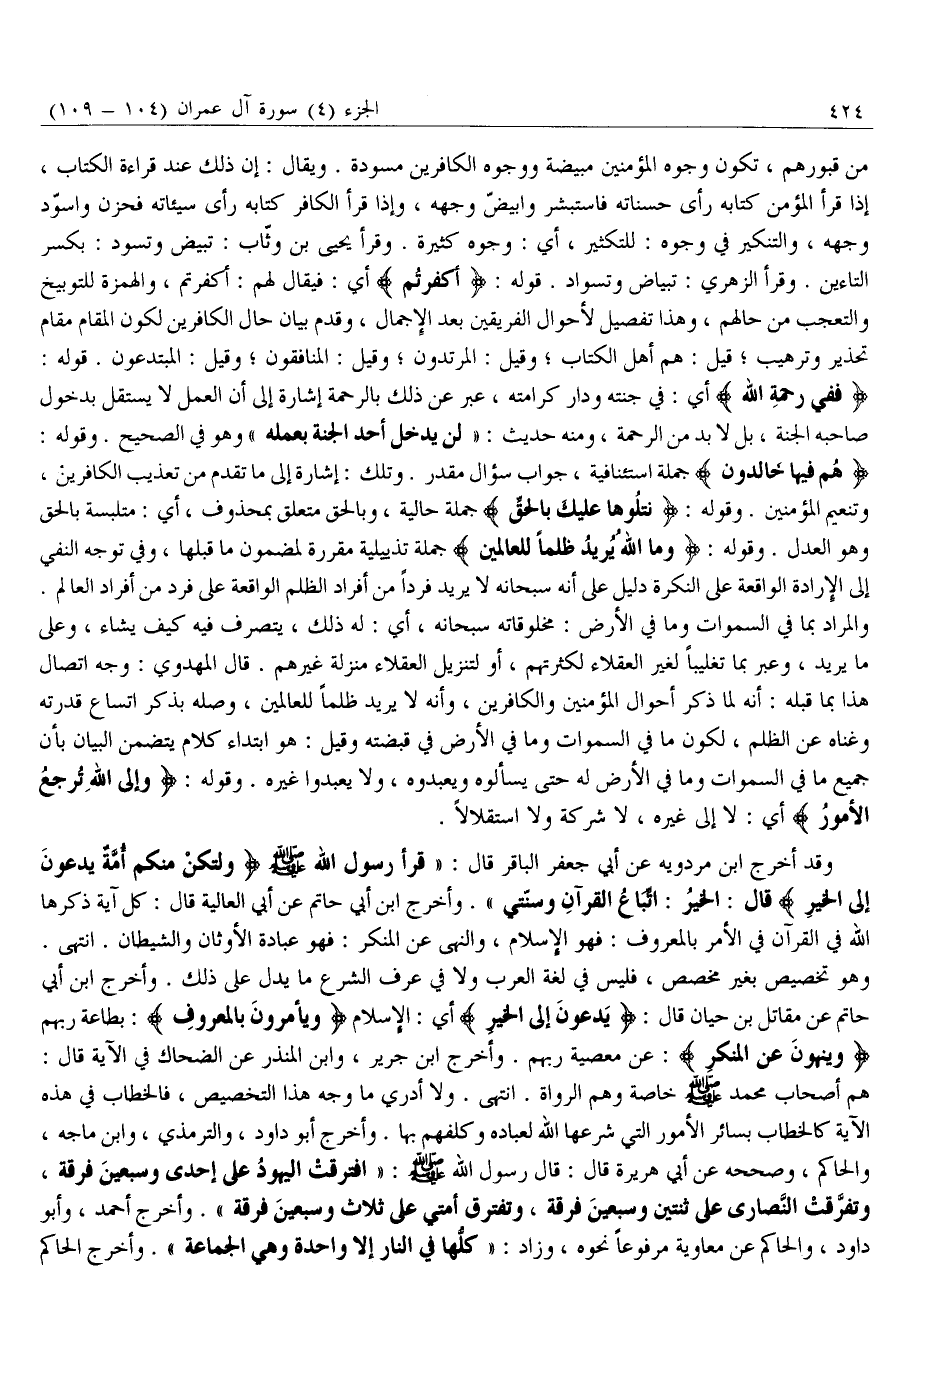 ٤٢٤ الجزء (٤) سورة آل عمران (١٠٤ – ١٠٩)
من قبورهم ، تكون وجوه المؤمنين مبيضة ووجوه الكافرين مسودة . ويقال : إن ذلك عند قراءة الكتاب ،
إذا قرأ المؤمن كتابه رأى حسناته فاستبشر وابيضّ وجهه ، وإذا قرأ الكافر كتابه رأى سيئاته فحزن واسوّد
وجهه ، والتنكير في وجوه : للتكثير ، أي : وجوه كثيرة . وقرأ يحيى بن وثّاب : تبيض وتسود : بكسر
التاءين . وقرأ الزهري : تبياض وتسواد . قوله : ﴿ أكفرتُم ﴾ أي : فيقال لهم : أكفرتم ، والهمزة للتوبيخ
والتعجب من حالهم ، وهذا تفصيل لأحوال الفريقين بعد الإجمال ، وقدم بيان حال الكافرين لكون المقام مقام
تحذير وترهيب ؛ قيل : هم أهل الكتاب ؛ وقيل : المرتدون ؛ وقيل : المنافقون ؛ وقيل : المبتدعون . قوله :
﴿ ففي رحمةِ الله ﴾ أي : في جنته ودار كرامته ، عبر عن ذلك بالرحمة إشارة إلى أن العمل لا يستقل بدخول
صاحبه الجنة ، بل لا بد من الرحمة ، ومنه حديث : « لن يدخل أحد الجنة بعمله » وهو في الصحيح . وقوله :
﴿ هُم فيها خَالدون ﴾ جملة استئنافية ، جواب سؤال مقدر . وتلك : إشارة إلى ما تقدم من تعذيب الكافرينْ ،
وتنعيم المؤمنين . وقوله : ﴿ نتلُوها عليكَ بالحقِّ ﴾ جملة حالية ، وبالحق متعلق بمحذوف ، أي : متلبسة بالحق
وهو العدل . وقوله : ﴿ وما اللهُ يُريدُ ظلماً للعالمين ﴾ جملة تذييلية مقررة لمضمون ما قبلها ، وفي توجه النفي
إلى الإرادة الواقعة على النكرة دليل على أنه سبحانه لا يريد فرداً من أفراد الظلم الواقعة على فرد من أفراد العالم .
والمراد بما في السموات وما في الأرض : مخلوقاته سبحانه ، أي : له ذلك ، يتصرف فيه كيف يشاء ، وعلى
ما يريد ، وعبر بما تغليباً لغير العقلاء لكثرتهم ، أو لتنزيل العقلاء منزلة غيرهم . قال المهدوي : وجه اتصال
هذا بما قبله : أنه لما ذكر أحوال المؤمنين والكافرين ، وأنه لا يريد ظلماً للعالمين ، وصله بذكر اتساع قدرته
وغناه عن الظلم ، لكون ما في السموات وما في الأرض في قبضته وقيل : هو ابتداء كلام يتضمن البيان بأن
جميع ما في السموات وما في الأرض له حتى يسألوه ويعبدوه ، ولا يعبدوا غيره . وقوله : ﴿ وإلى اللهِ تُرجعُ
الأمورُ ﴾ أي : لا إلى غيره ، لا شركة ولا استقلالاً .
وقد أخرج ابن مردويه عن أبي جعفر الباقر قال : « قرأ رسول الله ﷺ ﴿ ولتكنْ منكم أُمَّةٌ يدعونَ
إلى الخيرِ ﴾ قال : الخيرُ : اتّباعُ القرآنِ وسنّتي » . وأخرج ابن أبي حاتم عن أبي العالية قال : كل آية ذكرها
الله في القرآن في الأمر بالمعروف : فهو الإسلام ، والنهى عن المنكر : فهو عبادة الأوثان والشيطان . انتهى .
وهو تخصيص بغير مخصص ، فليس في لغة العرب ولا في عرف الشرع ما يدل على ذلك . وأخرج ابن أبي
حاتم عن مقاتل بن حيان قال : ﴿ يَدعونَ إلى الخيرِ ﴾ أي : الإسلام ﴿ ويأمرونَ بالمعروفِ ﴾ : بطاعة ربهم
﴿ وينهونَ عن المنكرِ ﴾ : عن معصية ربهم . وأخرج ابن جرير ، وابن المنذر عن الضحاك في الآية قال :
هم أصحاب محمد ﷺ خاصة وهم الرواة . انتهى . ولا أدري ما وجه هذا التخصيص ، فالخطاب في هذه
الآية كالخطاب بسائر الأمور التي شرعها الله لعباده وكلفهم بها . وأخرج أبو داود ، والترمذي ، وابن ماجه ،
والحاكم ، وصححه عن أبي هريرة قال : قال رسول الله ﷺ : « افترقتْ اليهودُ على إحدى وسبعينَ فرقة ،
وتفرَّقتْ النَّصارى على ثنتين وسبعينَ فرقة ، وتفترق أمتي على ثلاث وسبعينَ فرقة » . وأخرج أحمد ، وأبو
داود ، والحاكم عن معاوية مرفوعاً نحوه ، وزاد : « كلُّها في النار إلا واحدة وهي الجماعة » . وأخرج الحاكم